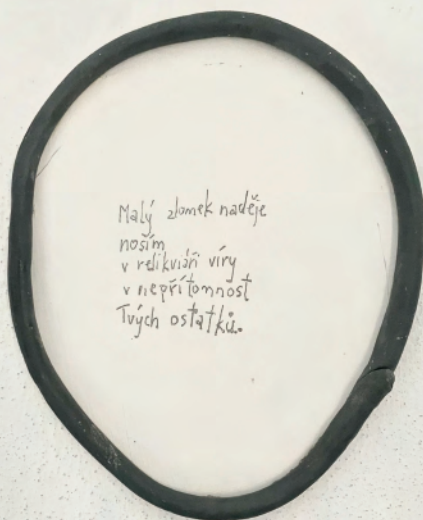 Malý zlomek naděje
nosím
v relikviáři víry
v nepřítomnost
Tvých ostatků.